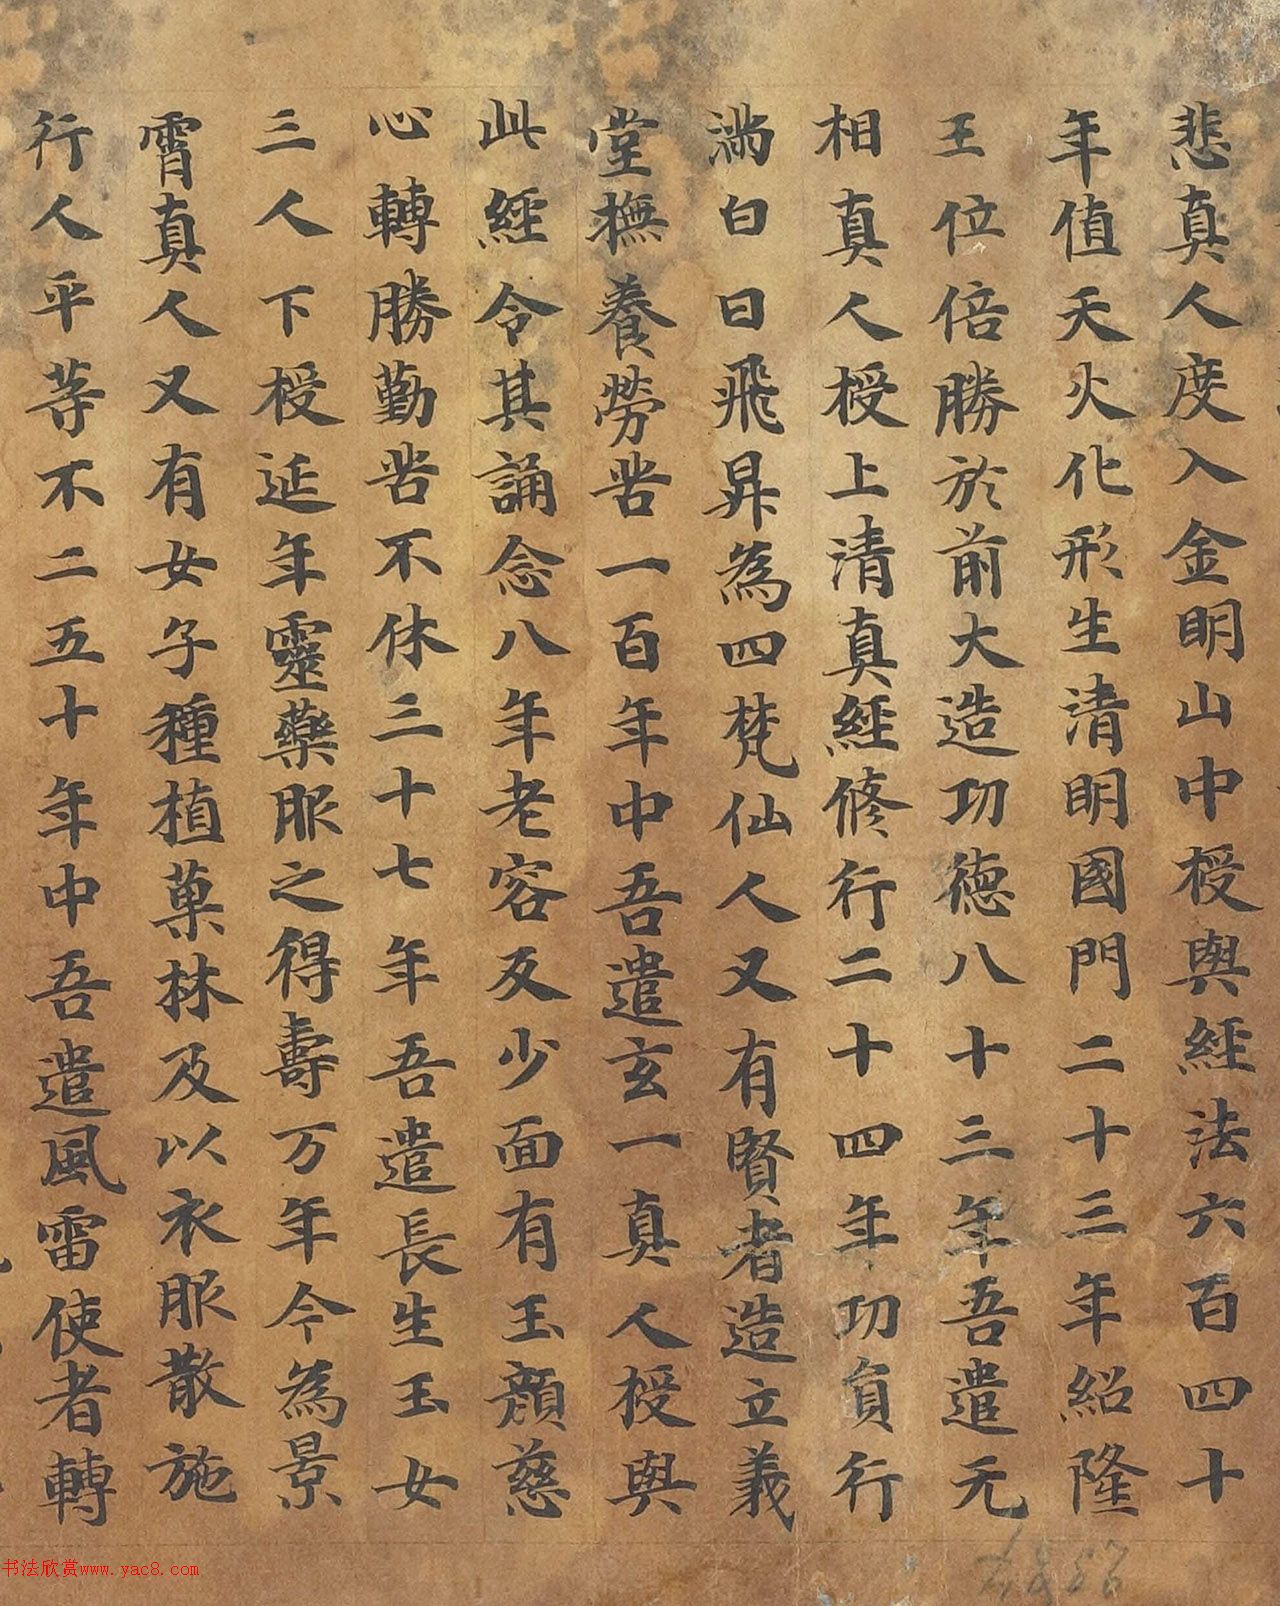 悲真人度入金明山中授與經法六百四十
年值天火化形生清明國門二十三年紹隆
王位倍勝於前大造功德八十三年吾遣无
相真人授上清真經修行二十四年功負行
滿白日飛昇為四梵仙人又有賢者造立義
堂撫養勞苦一百年中吾遣玄一真人授與
此經令其誦念八年老容反少面有玉顏慈
心轉勝勤苦不休三十七年吾遣長生玉女
三人下授延年靈藥服之得壽万年今為景
霄真人又有女子種植菓林及以衣服散施
行人平等不二五十年中吾遣風雷使者轉
书法欣赏www.yac8.com